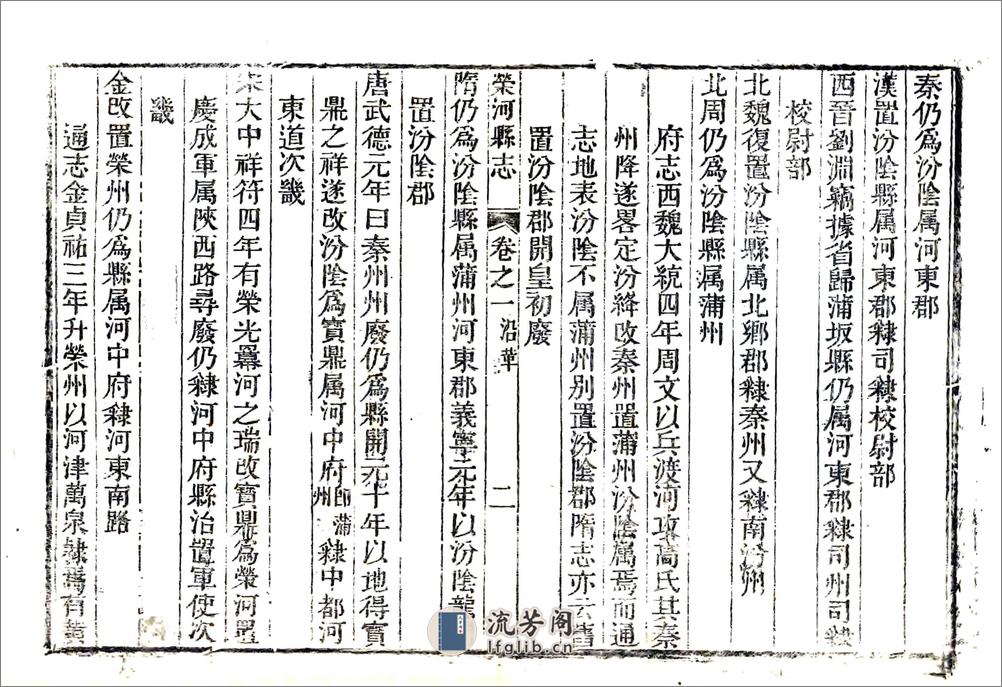 秦仍爲汾陰属河東郡
漢置汾陰縣属河東郡隸司隸校尉部
西晉劉淵竊據省歸蒲坂縣仍属河東郡隸司州司隸
校尉部
北魏復置汾陰縣属北鄉郡隸秦州又隸南汾州
北周仍爲汾陰縣属蒲州
府志西魏大統四年周文以兵渡河攻高氏其秦
州降遂畧定汾絳改秦州置蒲州汾陰属焉而通
志地表汾陰不属蒲州別置汾陰郡隋志亦云舊
置汾陰郡開皇初廢
榮河縣志 卷之一 沿革 二
隋仍爲汾陰縣属蒲州河東郡義寧元年以汾陰龍
置汾陰郡
唐武德元年曰秦州州廢仍爲縣開元十年以地得寶
鼎之祥遂改汾陰爲寶鼎属河中府即蒲州隸中都河
東道次畿
宋大中祥符四年有榮光羃河之瑞改寶鼎爲榮河置
慶成軍属陝西路尋廢仍隸河中府縣治置軍使次
畿
金改置榮州仍爲縣属河中府隸河東南路
通志金貞祐三年升榮州以河津萬泉隸焉有黃
流芳阁
lfglib.cn